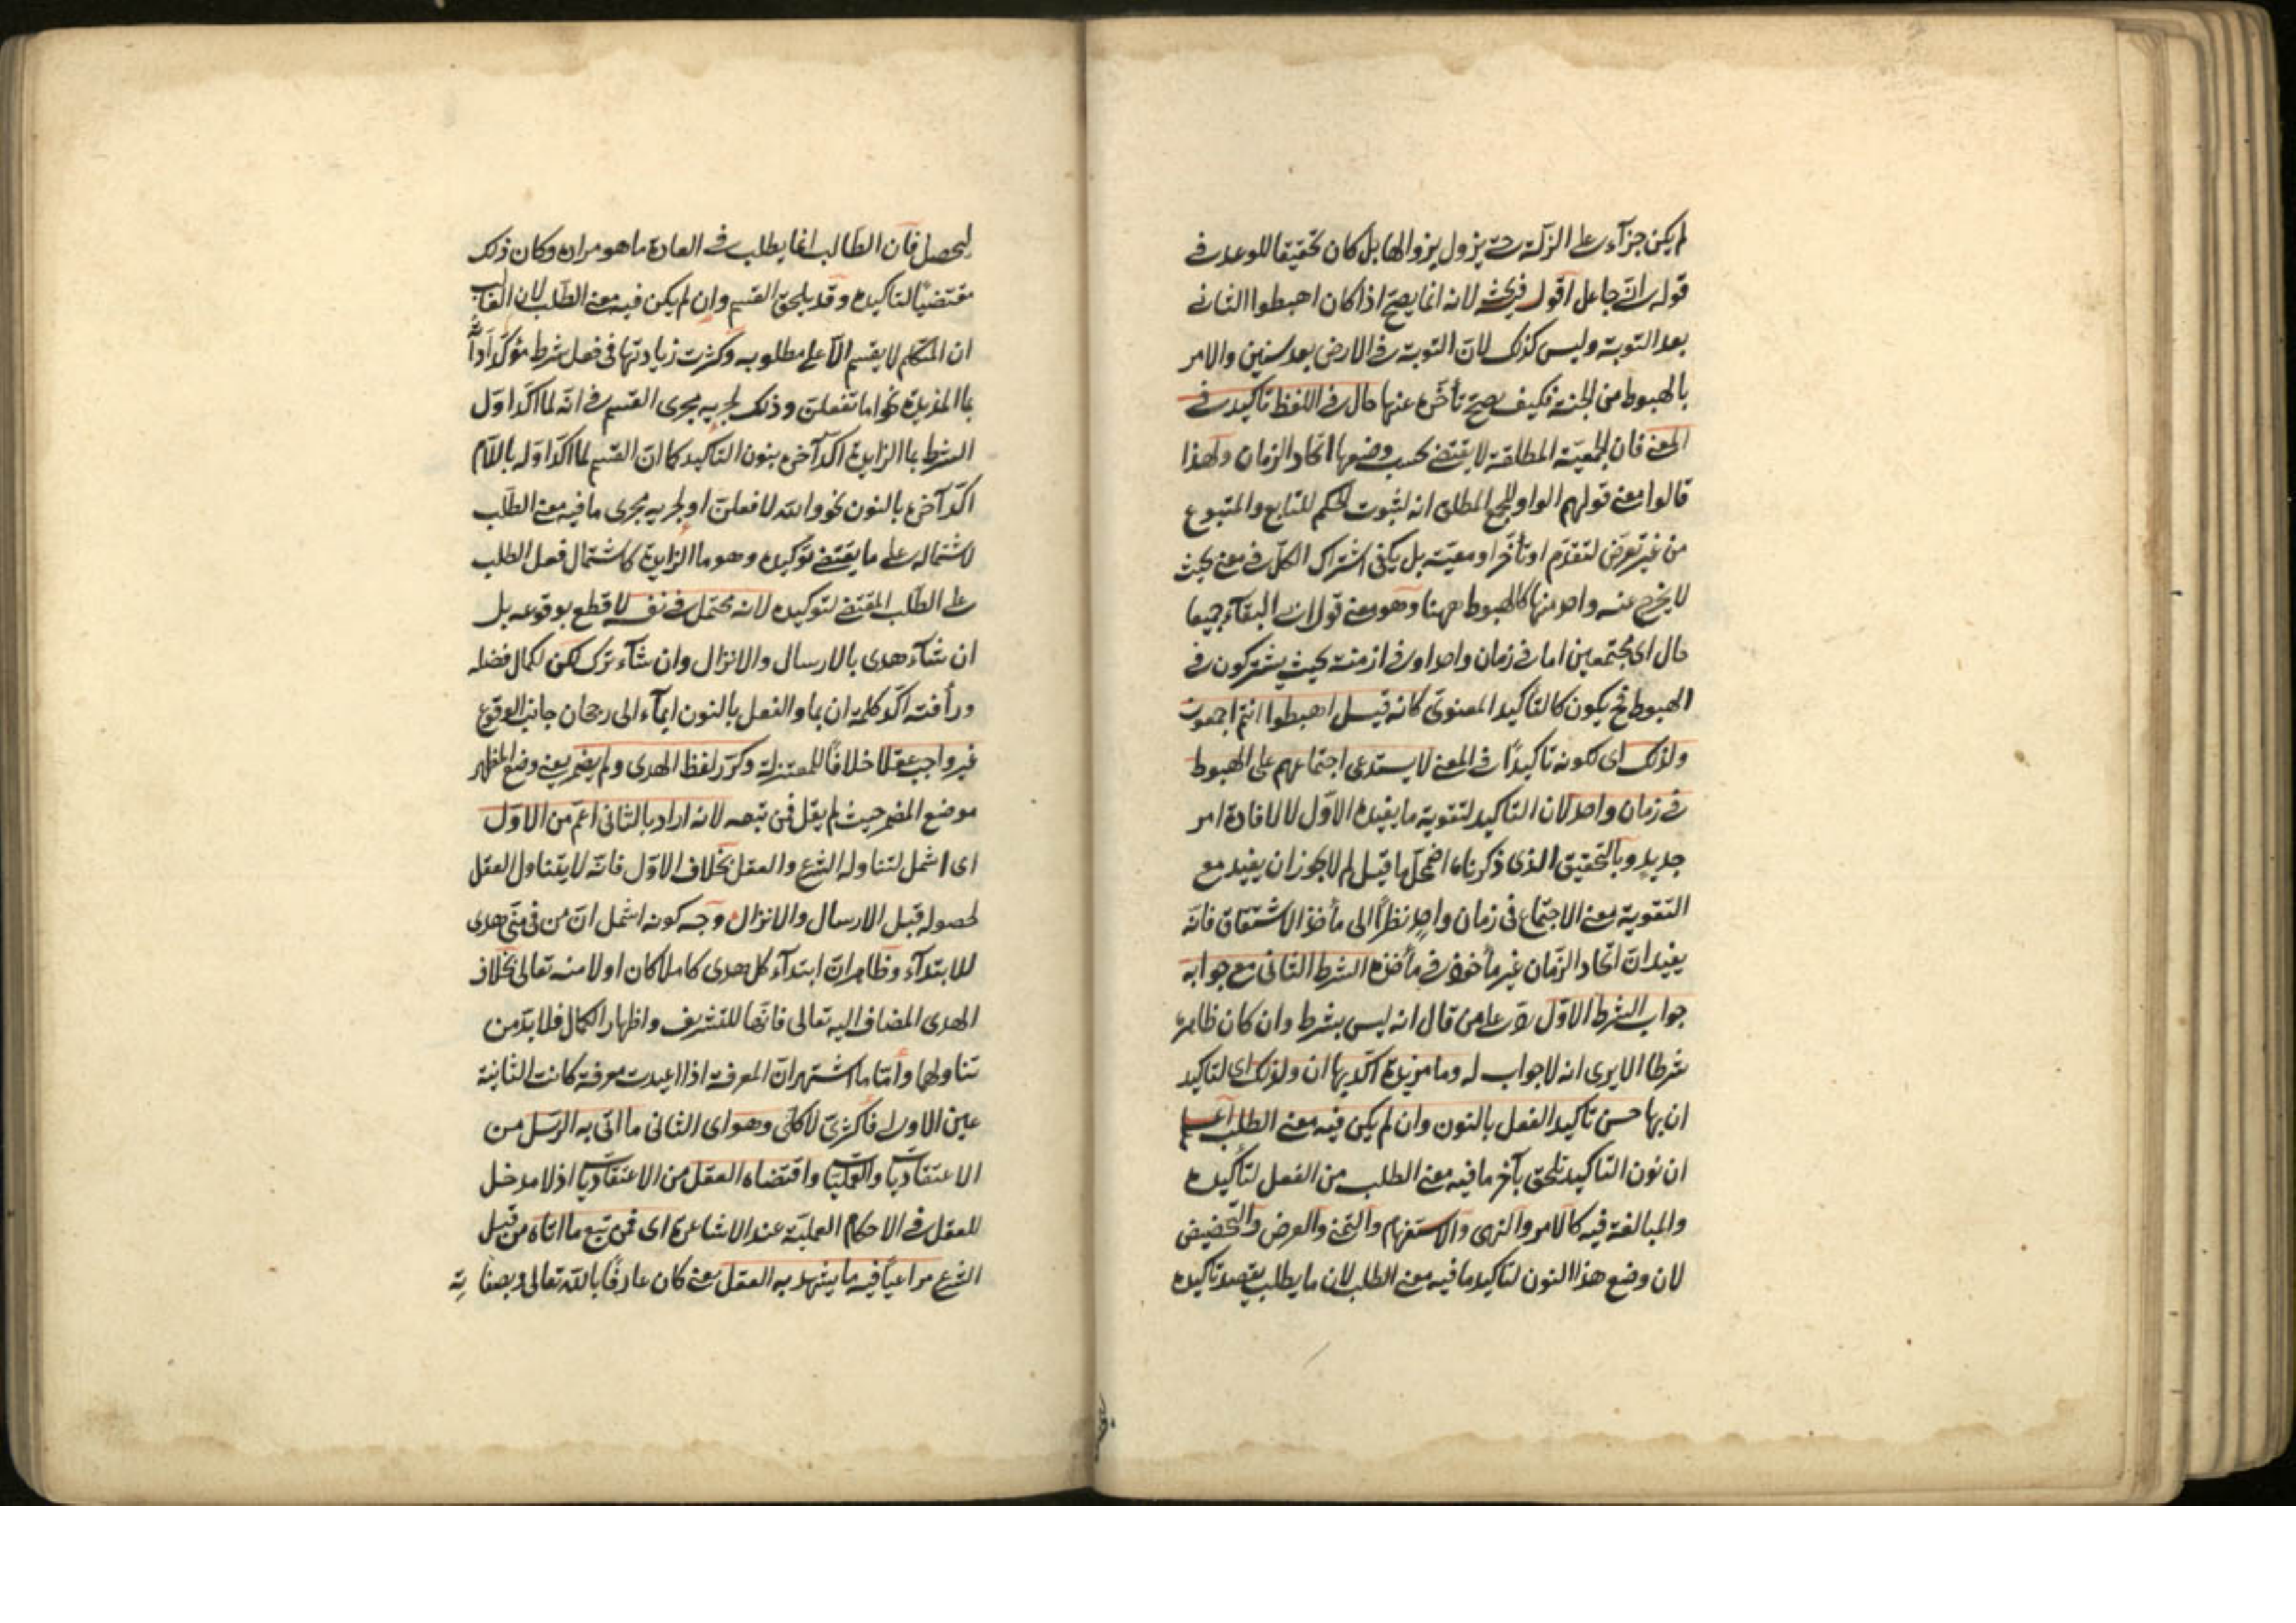 لم يكن جزآء على الزلّة حتى يزول بزوالها بل كان تحقيقا للوعد في
قوله انّي جاعل اقول فيه بحث لانه انما يصحّ اذا كان اهبطوا الثاني
بعد التوبة وليس كذلك لانّ التوبة في الارض بعد سنين والامر
بالهبوط من الجنة فكيف يصح تأخّره عنها حال في اللفظ تأكيد في
المعنى فان الجمعيّة المطلقة لا يقتضي بحسب وضعها اتحاد الزمان ولهذا
قالوا معنى قولهم الواو للجمع المطلق انه لثبوت الحكم للتابع والمتبوع
من غير تعرّض لتقدّم او تأخّر او معيّة بل يكفي اشتراك الكلّ في معنى بحيث
لا يخرج عنه واحد منها كالهبوط ههنا وهو معنى قول ابي البقآء جميعا
حال اى مجتمعين اما في زمان واحد او في ازمنة بحيث يشتركون في
الهبوط فح يكون كالتأكيد المعنوىّ كانه قيل اهبطوا انتم اجمعون
ولذلك اى لكونه تاكيدًا في المعنى لا يستدعى اجتماعهم على الهبوط
في زمان واحد لان التاكيد لتقوية ما يفيده الاوّل لا لافادة امر
جديد وبالتحقيق الذى ذكرناه اضمحلّ ما قيل لم لا يجوز ان يفيد مع
التقوية معنى الاجتماع فى زمان واحد نظرًا الى مأخذ الاشتقاق فانّه
يفيد انّ اتحاد الزّمان غير مأخوذ في مأخذه الشرط الثانى مع جوابه
جواب الشرط الاوّل ردّ على من قال انه ليس بشرط وان كان ظاهره
شرطا الا يرى انه لا جواب له وما مزيدة اكّد بها ان ولذلك اى لتاكيد
ان بها حسن تاكيد الفعل بالنون وان لم يكن فيه معنى الطلب اعلم
ان نون التاكيد تلحق بآخر ما فيه معنى الطلب من الفعل لتأكيده
والمبالغة فيه كالامر والنهى والاستفهام والتمنى والعرض والتحضيض
لان وضع هذا النون لتاكيد ما فيه معنى الطلب لان ما يطلب يقصد تاكيده
ليحصل فان الطالب انما يطلب في العادة ما هو مراده وكان ذلك
مقتضيًا لتاكيده وقد يلحق القسم وان لم يكن فيه معنى الطلب لان الغالب
ان المتكلم لا يقسم الّا على مطلوبه وكثرت زيادتها فى فعل شرط مؤكّد اداته
بما المزيدة نحو اما تفعلنّ وذلك لجريه مجرى القسم في انّه لما اكّد اوّل
الشرط بما الزايدة اكّد آخره بنون التاكيد كما انّ القسم لما اكّد اوّله باللام
اكّد آخره بالنون نحو والله لافعلنّ او لجريه مجرى ما فيه معنى الطلب
لاشتماله على ما يقتضى توكيده وهو ما الزايدة كاشتمال فعل الطلب
على الطلب المقتضى لتوكيده لانه محتمل في نفسه لا قطع بوقوعه بل
ان شآء هدى بالارسال والانزال وان شآء ترك لكن لكمال فضله
ورأفته اكّد كلمة ان بما والفعل بالنون ايمآء الى رجحان جانب الوقوع
غير واجب عقلا خلافًا للمعتزلة وكرّر لفظ الهدى ولم يضمر يعنى وضع المظهر
موضع المضمر حيث لم يقل فمن تبعه لانه اراد بالثانى اعمّ من الاوّل
اى اشمل لتناوله الشرع والعقل بخلاف الاوّل فانّه لا يتناول العقل
لحصوله قبل الارسال والانزال وجه كونه اشمل انّ من فى منّى هدى
للابتدآء وظاهر انّ ابتدآء كل هدى كاملا كان او لا منه تعالى بخلاف
الهدى المضاف اليه تعالى فانّها للتشريف واظهار الكمال فلا بدّ من
تناولهما وامّا ما اشتهر انّ المعرفة اذا اعيدت معرفة كانت الثانية
عين الاولى فاكثرىّ لا كلّى وهو اى الثانى ما اتى به الرسل من
الاعتقاديات والعمليات واقتضاه العقل من الاعتقاديات اذ لا مدخل
للعقل في الاحكام العمليّة عند الاشاعرة اى فمن تبع ما اتاه من قبل
الشرع مراعيًا فيه ما يشهد به العقل يعنى كان عارفًا بالله تعالى وبصفاته